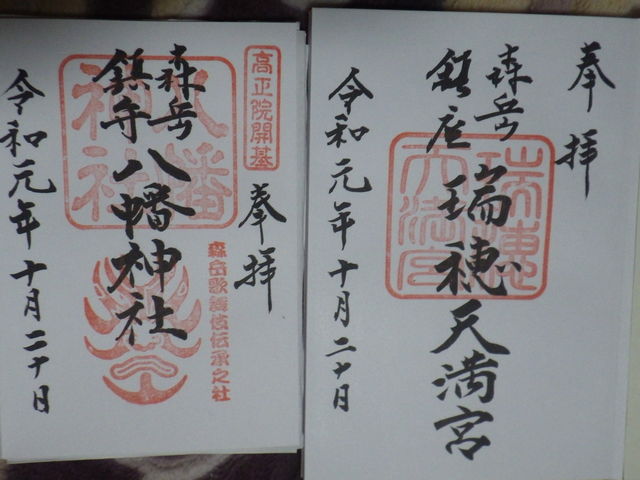 奉拝
森岳
鎮座
瑞穂天満宮
令和元年十月二十日
高正院開基
奉拝
森岳
鎮守
八幡神社
森岳歌舞伎伝承之社
八幡
神社
令和元年十月二十日